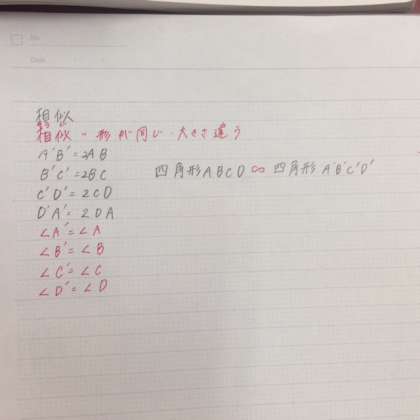 No.
Date
相似
相似 - 形が同じ・大きさ違う
A'B'=2AB
B'C'=2BC 四角形ABCD ∽ 四角形A'B'C'D'
C'D'=2CD
D'A'=2DA
∠A'=∠A
∠B'=∠B
∠C'=∠C
∠D'=∠D